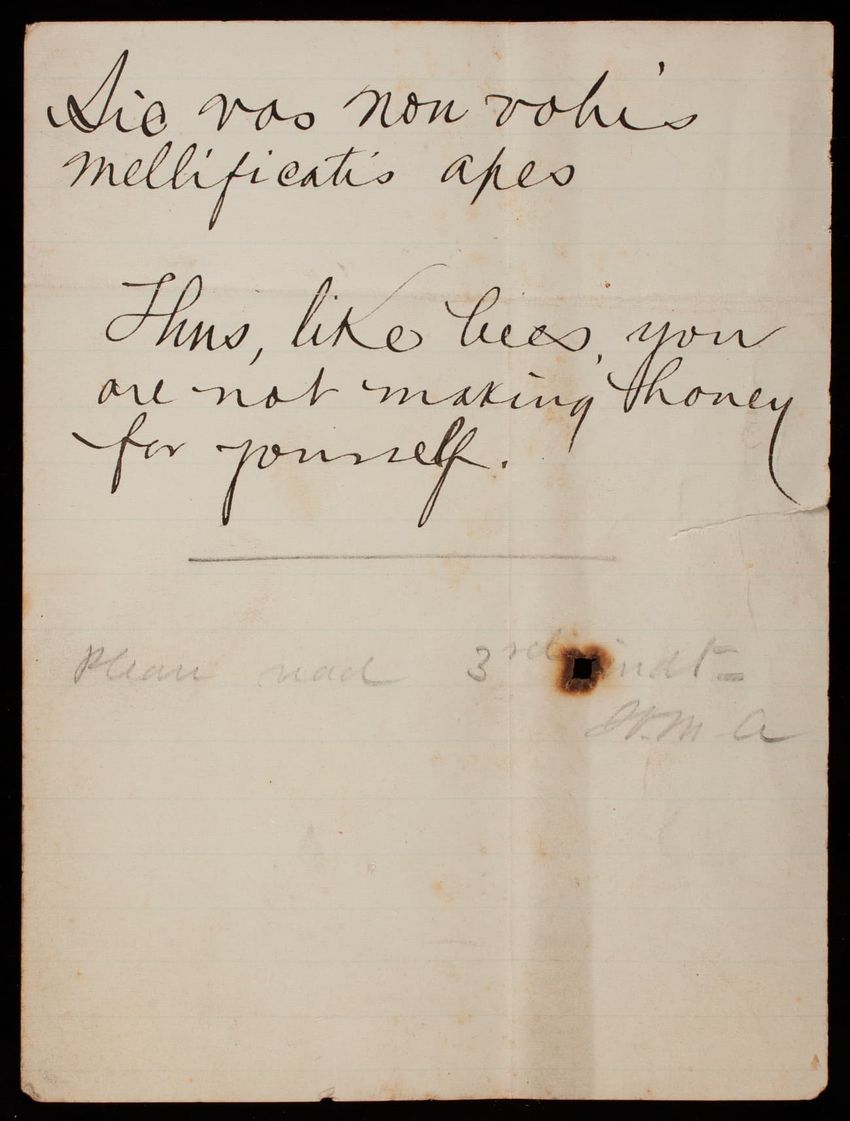 Sic vos non vobis
mellificatis apes
Thus, like bees, you
are not making honey
for yourself.
Please read 3rd
H.M.A